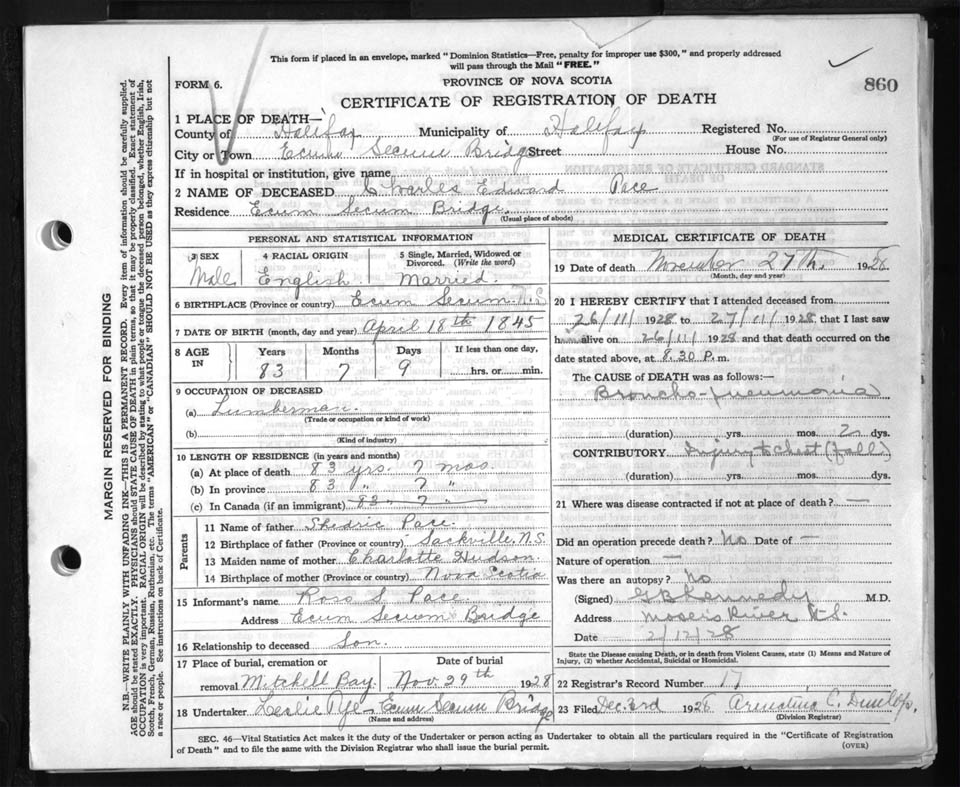 This form if placed in an envelope, marked "Dominion Statistics—Free, penalty for improper use $300," and properly addressed
will pass through the Mail "FREE."
FORM 6.
PROVINCE OF NOVA SCOTIA
860
CERTIFICATE OF REGISTRATION OF DEATH
1 PLACE OF DEATH—
County of Halifax Municipality of Halifax Registered No.
(For use of Registrar General only)
City or Town Ecum Secum Bridge Street House No.
If in hospital or institution, give name
2 NAME OF DECEASED Charles Edward Pace
Residence Ecum Secum Bridge
(Usual place of abode)
PERSONAL AND STATISTICAL INFORMATION
3 SEX 4 RACIAL ORIGIN 5 Single, Married, Widowed or
Divorced. (Write the word)
Male English Married.
6 BIRTHPLACE (Province or country) Ecum Secum N.S
7 DATE OF BIRTH (month, day and year) April 18th 1845
8 AGE IN Years Months Days If less than one day,
83 7 9 hrs. or min.
9 OCCUPATION OF DECEASED
(a) Lumberman.
(Trade or occupation or kind of work)
(b)
(Kind of industry)
10 LENGTH OF RESIDENCE (in years and months)
(a) At place of death 83 yrs. 7 mos.
(b) In province 83 " 7 "
(c) In Canada (if an immigrant) 83 " 7 "
Parents
11 Name of father Shedric Pace.
12 Birthplace of father (Province or country) Sackville, N.S.
13 Maiden name of mother Charlotte Hudson
14 Birthplace of mother (Province or country) Nova Scotia
15 Informant's name Ross S. Pace.
Address Ecum Secum Bridge
16 Relationship to deceased Son.
17 Place of burial, cremation or Date of burial
removal Mitchell Bay. Nov. 29th 1928
18 Undertaker Leslie Pye- Ecum Secum Bridge
(Name and address)
MEDICAL CERTIFICATE OF DEATH
19 Date of death November 27th. 1928
(Month, day and year)
20 I HEREBY CERTIFY that I attended deceased from
26/11/1928 to 27/11/1928, that I last saw
h alive on 26/11/1928 and that death occurred on the
date stated above, at 8.30 P.m.
The CAUSE of DEATH was as follows:—
Broncho-pneumonia
(duration) yrs. mos. 2 dys.
CONTRIBUTORY Injury to chest (fall)
(duration) yrs. mos. dys.
21 Where was disease contracted if not at place of death? —
Did an operation precede death? No Date of —
Nature of operation —
Was there an autopsy? No
(Signed) Kennedy M.D.
Address Mosers River N.S.
Date 2/12/28
State the Disease causing Death, or in death from Violent Causes, state (1) Means and Nature of
Injury, (2) whether Accidental, Suicidal or Homicidal.
22 Registrar's Record Number 17
23 Filed Dec. 3rd 1928 C. Dunlop.
(Division Registrar)
SEC. 46—Vital Statistics Act makes it the duty of the Undertaker or person acting as Undertaker to obtain all the particulars required in the "Certificate of Registration
of Death" and to file the same with the Division Registrar who shall issue the burial permit.
(OVER)
MARGIN RESERVED FOR BINDING
N.B.—WRITE PLAINLY WITH UNFADING INK—THIS IS A PERMANENT RECORD. Every item of information should be carefully supplied.
AGE should be stated EXACTLY. PHYSICIANS should STATE CAUSE OF DEATH in plain terms, so that it may be properly classified. Exact statement of
OCCUPATION is very important. RACIAL ORIGIN will be described by stating to what people or tongue the deceased person belonged, whether English, Irish,
Scotch, French, German, Russian, Ruthenian, etc. The terms "AMERICAN" or "CANADIAN" SHOULD NOT BE USED as they express citizenship but not
a race or people. See instructions on back of Certificate.